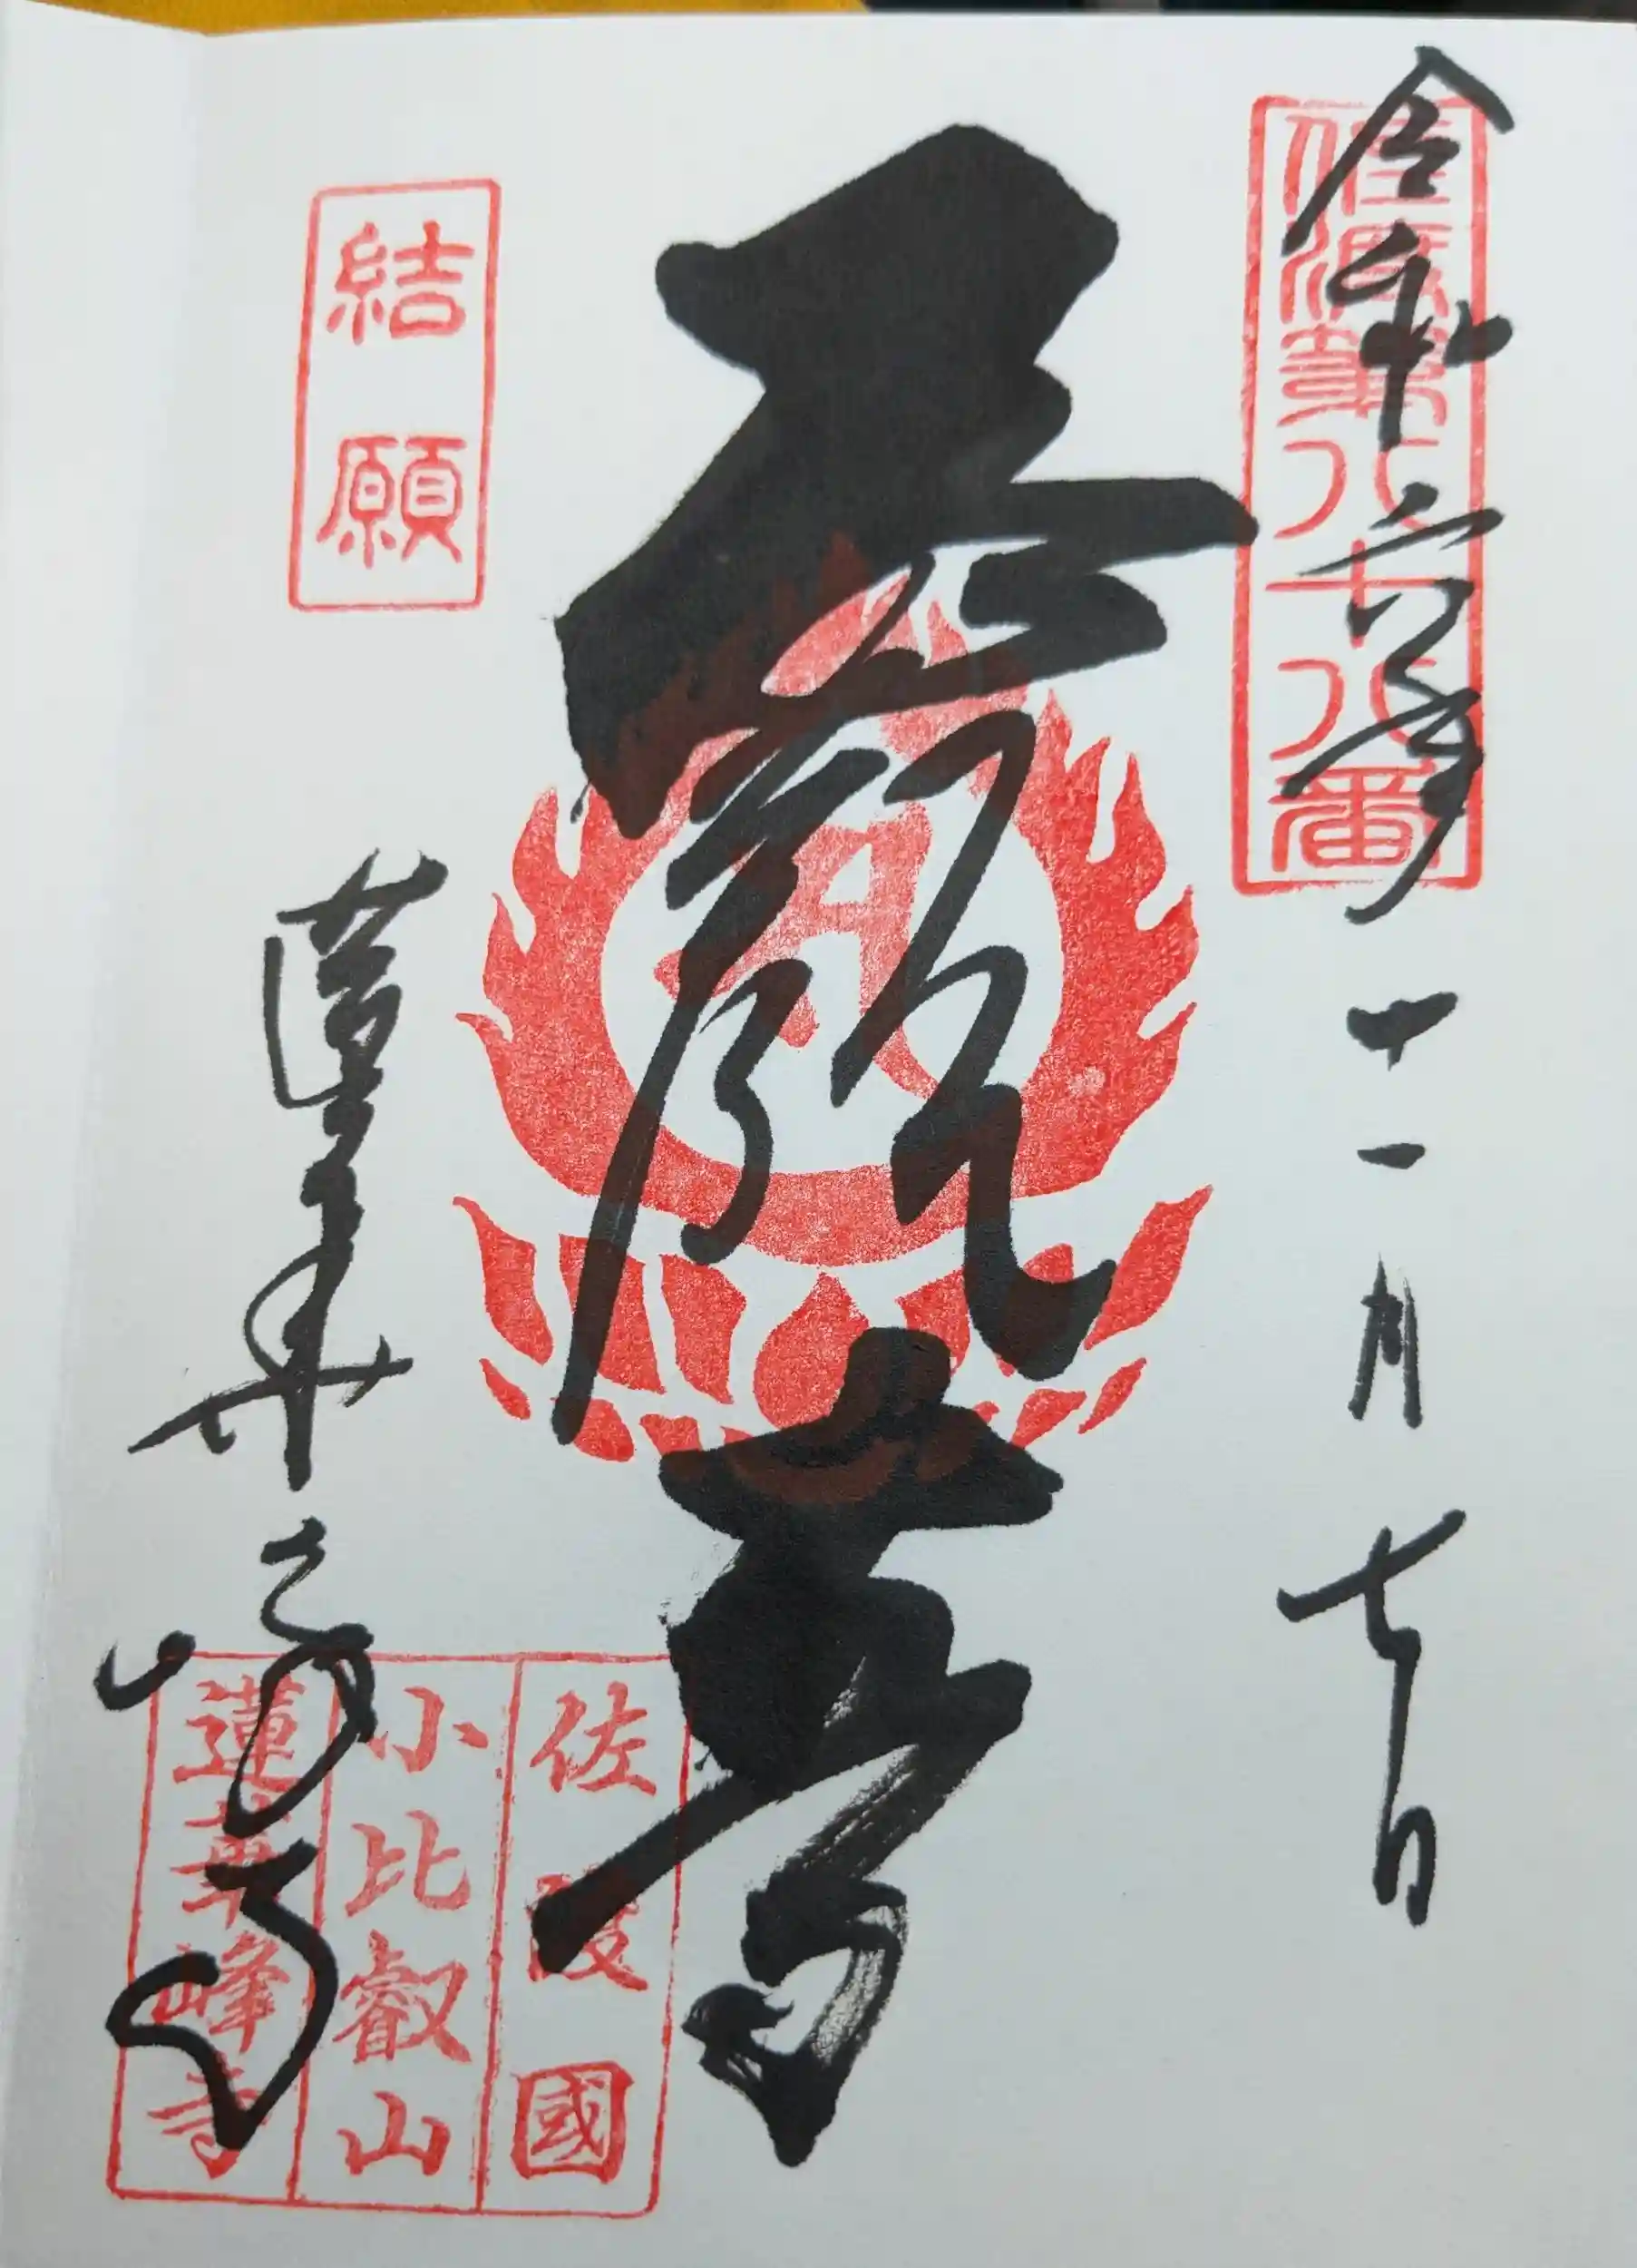 佐渡第八十八番
令和六年十一月七日
聖観音
結願
蓮華峰寺
佐渡國
小比叡山
蓮華峰寺